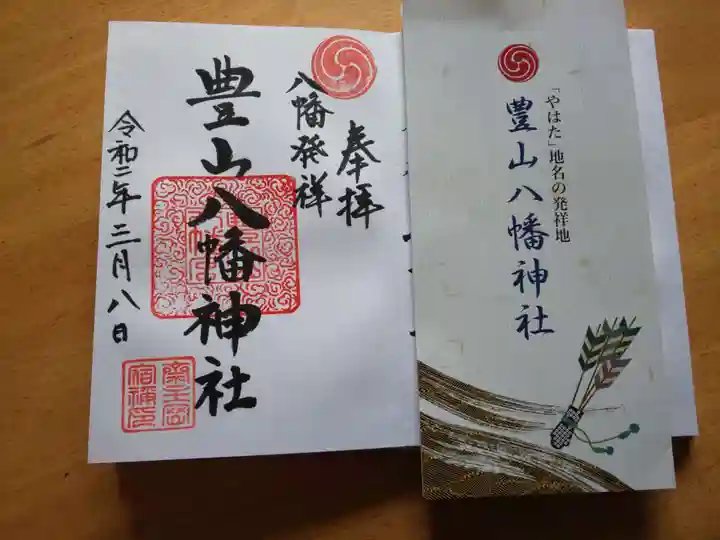 奉拝
八幡発祥
豊山八幡神社
令和二年三月八日
「やはた」地名の発祥地
豊山八幡神社